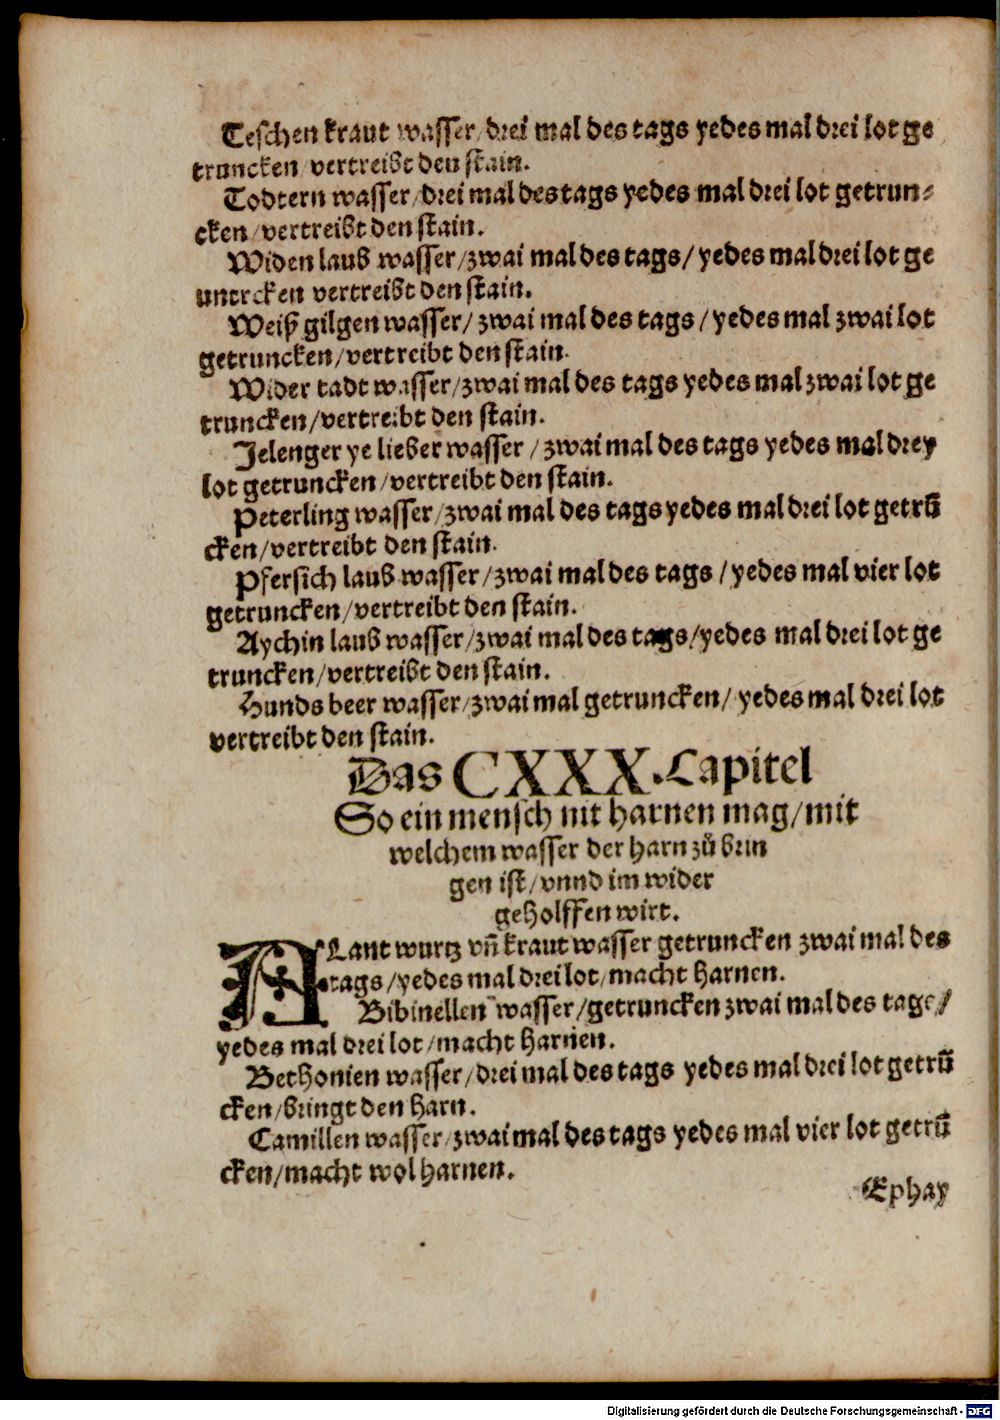 Teschen kraut wasser/drei mal des tags yedes mal drei lot ge
truncken/vertreibt den stain.
Todtern wasser/drei mal des tags yedes mal drei lot getrun⸗
cken/vertreibt den stain.
Widen laub wasser/zwai mal des tags/yedes mal drei lot ge
untrcken vertreibt den stain.
Weiß gilgen wasser/zwai mal des tags/yedes mal zwai lot
getruncken/vertreibt den stain.
Wider tadt wasser/zwai mal des tags yedes mal zwai lot ge
truncken/vertreibt den stain.
Jelenger ye lieber wasser/zwai mal des tags yedes mal drey
lot getruncken/vertreibt den stain.
Peterling wasser/zwai mal des tags yedes mal drei lot getrū
cken/vertreibt den stain.
Pfersich laub wasser/zwai mal des tags/yedes mal vier lot
getruncken/vertreibt den stain.
Aychin laub wasser/zwai mal des tags/yedes mal drei lot ge
truncken/vertreibt den stain.
Hunds beer wasser/zwai mal getruncken/yedes mal drei lot
vertreibt den stain.
Das CXXX.Capitel
So ein mensch nit harnen mag/mit
welchem wasser der harn zů brin
gen ist/vnnd im wider
geholffen wirt.
ALant wurtz vñ kraut wasser getruncken zwai mal des
tags/yedes mal drei lot/macht harnen.
Bibinellen wasser/getruncken zwai mal des tags/
yedes mal drei lot/macht harnen.
Bethonien wasser/drei mal des tags yedes mal drei lot getrū
cken/bringt den harn.
Camillen wasser/zwai mal des tags yedes mal vier lot getrū
cken/macht wol harnen.
Ephay
Digitalisierung gefördert durch die Deutsche Forschungsgemeinschaft - DFG